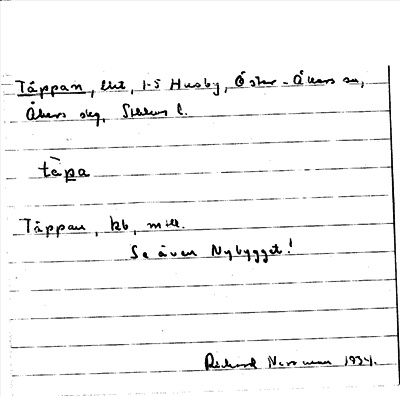 Täppan, lht, 1-5 Husby, Öster-Åkers sn,
Åkers skg, Sthlms l.
tàpa
Täppan, kb, mtl.
Se även Nybygget!
Rickard Norrman 1934.